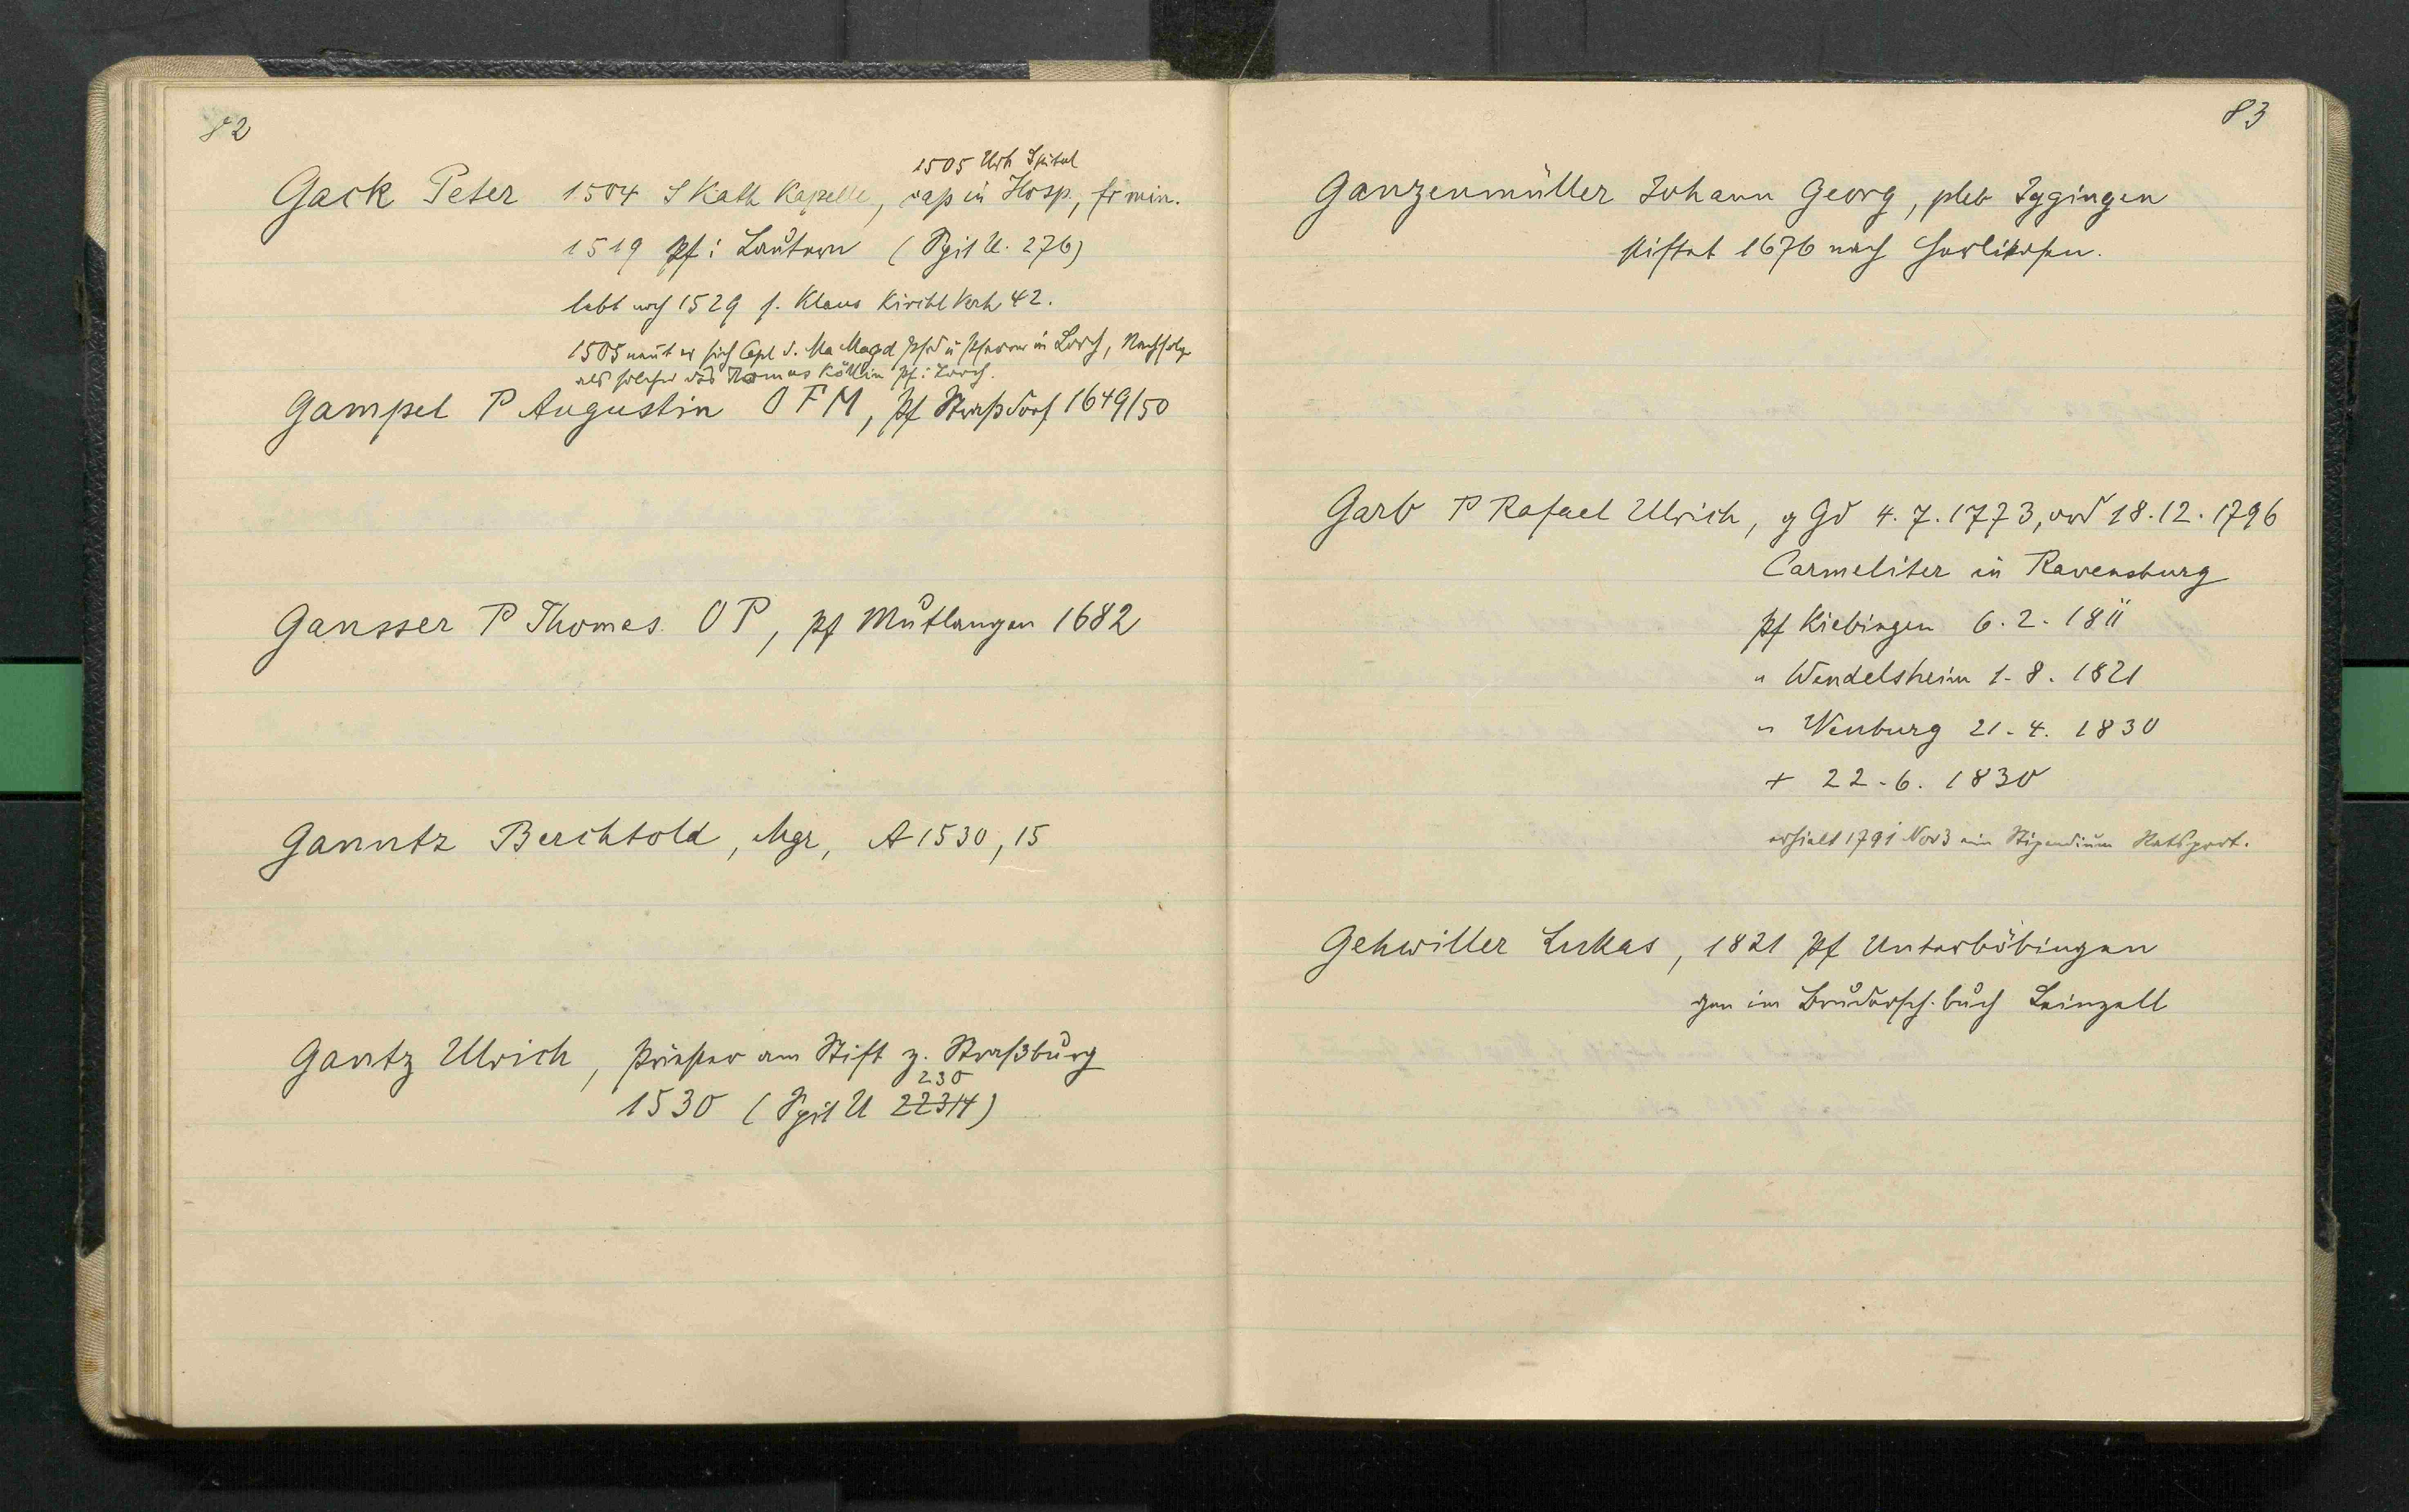 82
1505 Urk Spital
Gack Peter 1504 S Kath Kapelle, cap in Hosp., fr min.
1519 Pf i Lautern (Spit U. 276)
lebt noch 1529 s. Klaus Kirchl Verh 42.
1505 nennt er sich Cpl S. Ma Magd u Pfarrer in Lorch, Nachfolger
als solcher des Thomas Köllin Pf i Lorch.
Gampel P Augustin OFM, Pf Straßdorf 1649/50
Gansser P Thomas OP, Pf Mutlangen 1682
Ganntz Berchtold, Mgr, A 1530, 15
Gantz Ulrich, Priester am Stift z. Straßburg
230
1530 (Spit U 22314)
83
Ganzenmüller Johann Georg, pleb Iggingen
stiftet 1676 nach Herlikofen.
Garb P Rafael Ulrich, g Gd 4.7.1773, ord 18.12.1796
Carmeliter in Ravensburg
Pf Kiebingen 6.2.1811
" Wendelsheim 1.8.1821
" Wenburg 21.4.1830
+ 22.6.1830
erhielt 1791 Nov 3 ein Stipendium Ratsprot.
Gehwiller Lukas, 1821 Pf Unterböbingen
gen im Brudersch.buch Leinzell